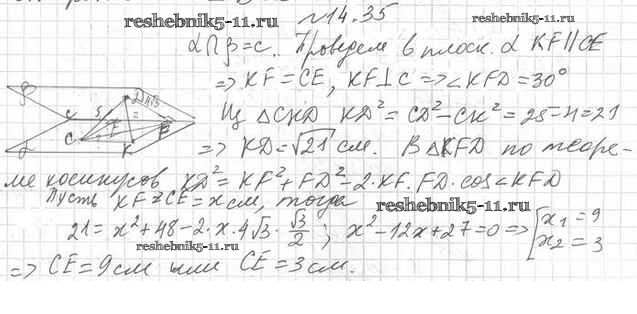 reshebnik5-11.ru
№14.35
α∩β=c. Проведем в плоск. α KF∥CE
⇒ KF=CE, KF⊥c ⇒ ∠KFD=30°
Из △CKD KD²=CD²−CK²=25−4=21
⇒ KD=√21 см. В △KFD по теоре-
ме косинусов KD²=KF²+FD²−2·KF·FD·cos∠KFD
Пусть KF=CE=x см, тогда
21=x²+48−2·x·4√3·√3/2; x²−12x+27=0 ⇒ [x₁=9 x₂=3
⇒ CE=9 см или CE=3 см.
reshebnik5-11.ru
reshebnik5-11.ru
β
α
C
D
K
5
4√3